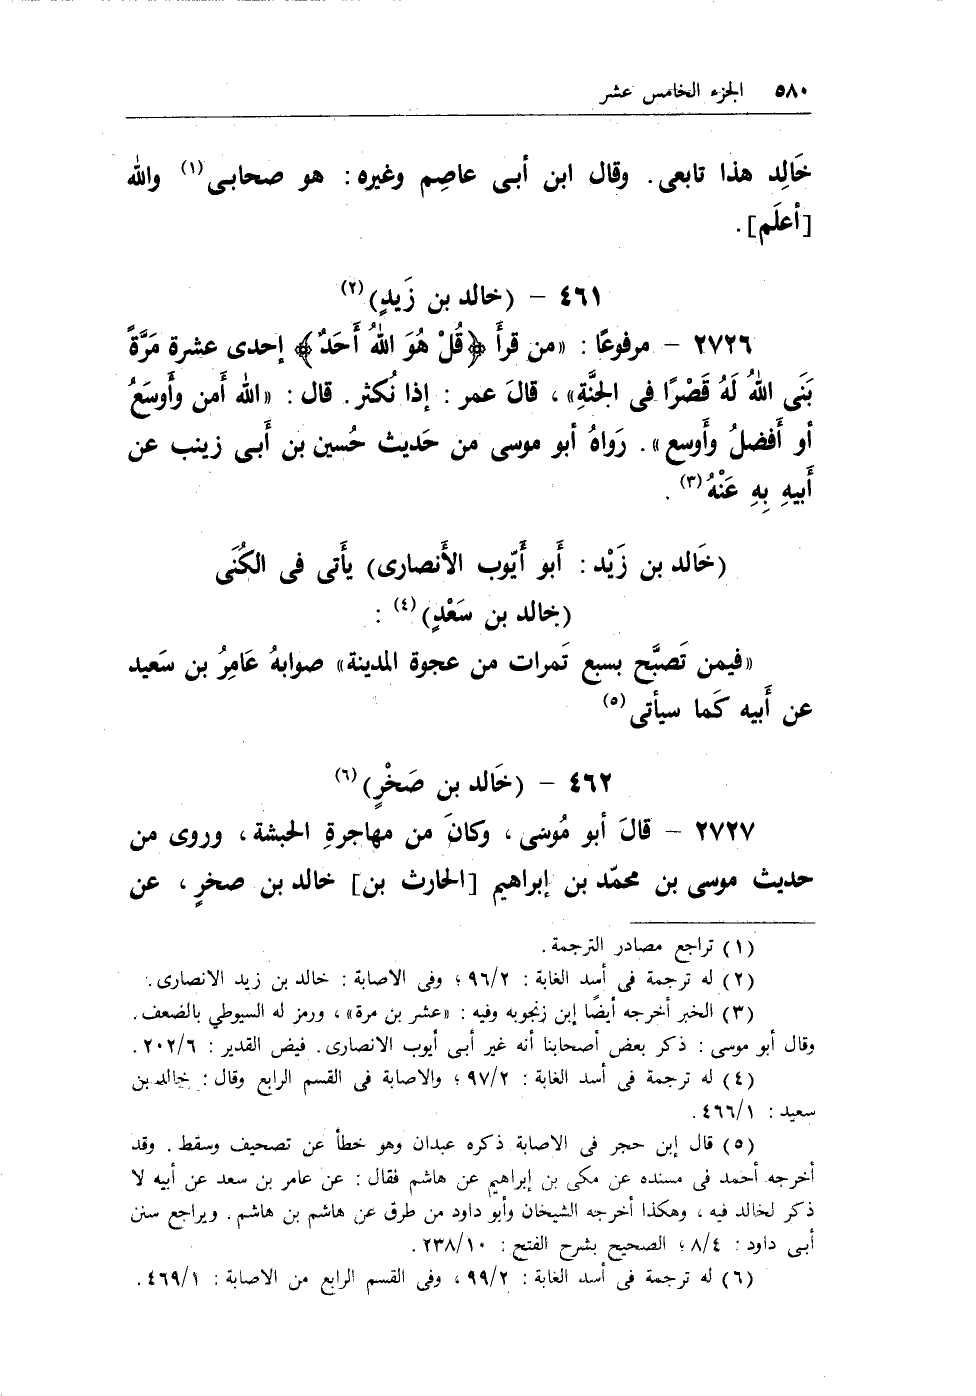 ٥٨٠ الجزء الخامس عشر
خَالِد هذا تابعى. وقال ابن أبى عاصِم وغيره: هو صحابى(١) والله
[أعلَم].
٤٦١ – (خالد بن زَيدٍ)(٢)
٢٧٢٦ – مرفوعًا: «من قرأَ ﴿قُلْ هُوَ اللهُ أَحَدٌ﴾ إحدى عشرة مَرَّةً
بَنَى اللهُ لَهُ قَصْرًا فى الجنَّةِ»، قالَ عمر: إذا نُكثر. قال: «الله أَمن وأَوسَعُ
أو أَفضلُ وأَوسع». رَواهُ أبو موسى من حَديث حُسين بن أَبى زينب عن
أَبيهِ بِهِ عَنْهُ(٣).
(خَالد بن زَيْد: أَبو أَيّوب الأَنصارى) يأَتى فى الكُنَى
(خالد بن سَعْدٍ)(٤):
«فيمن تَصبَّح بسبع تَمرات من عجوة المدينة» صوابهُ عَامِرُ بن سَعيد
عن أَبيه كَما سيأتى(٥)
٤٦٢ – (خَالد بن صَخْرٍ)(٦)
٢٧٢٧ – قالَ أبو مُوسَى، وكانَ من مهاجرةِ الحبشة، وروى من
حديث موسى بن محمّد بن إبراهيم [الحارث بن] خالد بن صخرٍ، عن
(١) تراجع مصادر الترجمة.
(٢) له ترجمة فى أسد الغابة: ٩٦/٢؛ وفى الاصابة: خالد بن زيد الانصارى.
(٣) الخبر أخرجه أيضًا إبن زنجوبه وفيه: «عشر بن مرة»، ورمز له السيوطي بالضعف.
وقال أبو موسى: ذكر بعض أصحابنا أنه غير أبى أيوب الانصارى. فيض القدير: ٢٠٢/٦.
(٤) له ترجمة فى أسد الغابة: ٩٧/٢؛ والاصابة فى القسم الرابع وقال: خالد بن
سعيد: ٤٦٦/١.
(٥) قال إبن حجر فى الاصابة ذكره عبدان وهو خطأ عن تصحيف وسقط. وقد
أخرجه أحمد فى مسنده عن مكى بن إبراهيم عن هاشم فقال: عن عامر بن سعد عن أبيه لا
ذكر لخالد فيه، وهكذا أخرجه الشيخان وأبو داود من طرق عن هاشم بن هاشم. ويراجع سنن
أبى داود: ٨/٤؛ الصحيح بشرح الفتح: ٢٣٨/١٠.
(٦) له ترجمة فى أسد الغابة: ٩٩/٢، وفى القسم الرابع من الاصابة: ٤٦٩/١.